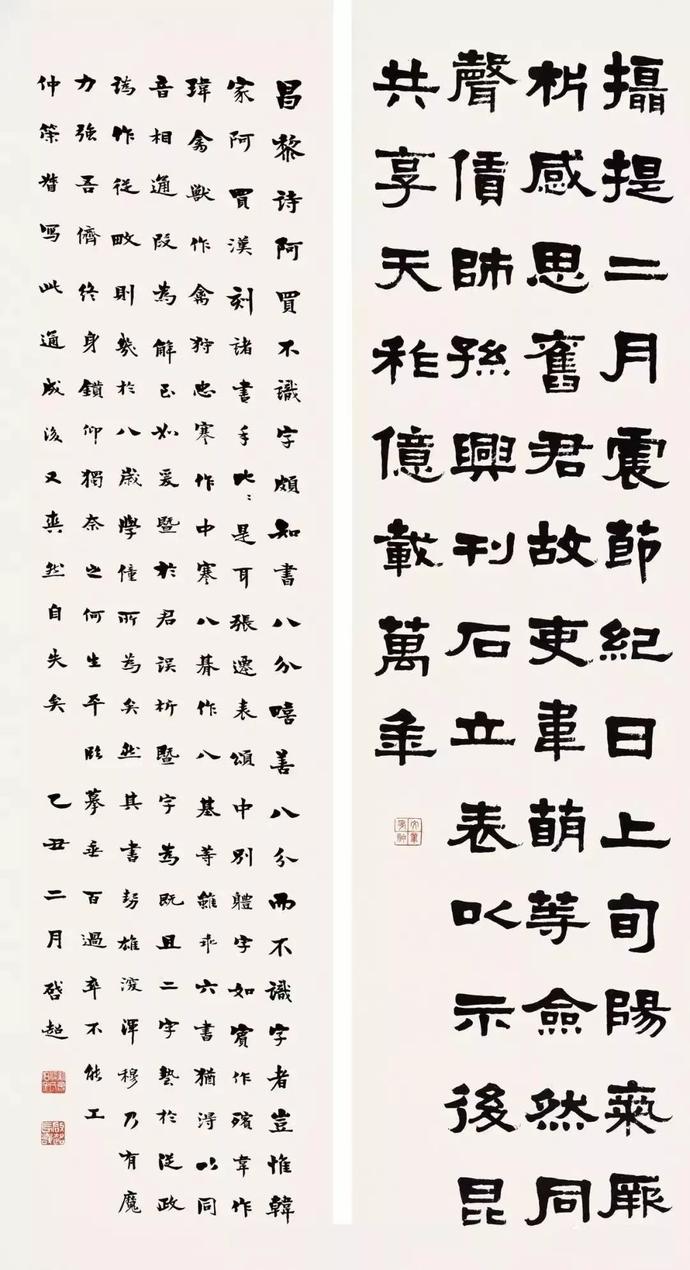 攝提二月震節紀日上旬陽氣厥
析感思舊君故吏韋萌等僉然同
聲債師孫興刊石立表以示後昆
共享天祚億載萬年
昌黎詩阿買不識字頗知書八分嘻善八分而不識字者豈惟韓
家阿買漢刻諸書手比比是耳張遷表頌中別體字如賓作殯韋作
瑋禽獸作禽狩忠寒作中寒八朞作八基等雖乖六書猶得以同
音相通段為解已如爰暨於君誤析暨字為既且二字埶於從政
譌作從畋則幾於八歲學僮所為矣然其書勢雄深渾穆乃有魔
力強吾儕終身鑽仰獨奈之何生平臨摹垂百過卒不能工
仲策督寫此通成後又爽然自失矣 乙丑二月啓超